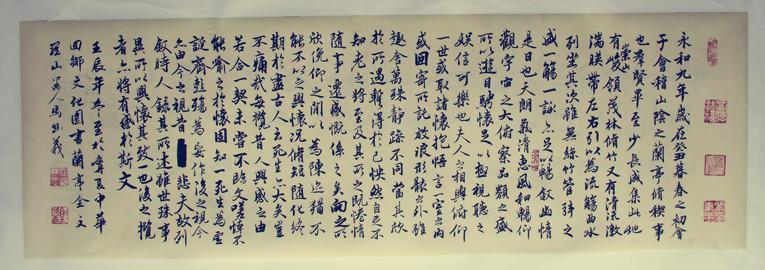 永和九年歲在癸丑暮春之初會
于會稽山陰之蘭亭脩稧事
也羣賢畢至少長咸集此地
有崇山峻領茂林脩竹又有清流激
湍暎帶左右引以為流觴曲水
列坐其次雖無絲竹管弦之
盛一觴一詠亦足以暢叙幽情
是日也天朗氣清惠風和暢仰
觀宇宙之大俯察品類之盛
所以遊目騁懷足以極視聽之
娛信可樂也夫人之相與俯仰
一世或取諸懷抱悟言一室之內
或因寄所託放浪形骸之外雖
趣舍萬殊靜躁不同當其欣
於所遇暫得於己怏然自足不
知老之將至及其所之既惓情
隨事遷感慨係之矣向之所
欣俛仰之閒以為陳迹猶不
能不以之興懷況脩短隨化終
期於盡古人云死生亦大矣豈
不痛哉每攬昔人興感之由
若合一契未嘗不臨文嗟悼不
能喻之於懷固知一死生為虛
誕齊彭殤為妄作後之視今
亦由今之視昔悲夫故列
叙時人錄其所述雖世殊事
異所以興懷其致一也後之攬
者亦將有感於斯文
壬辰年冬至於中華
回鄉文化園書蘭亭全文
山人馬義